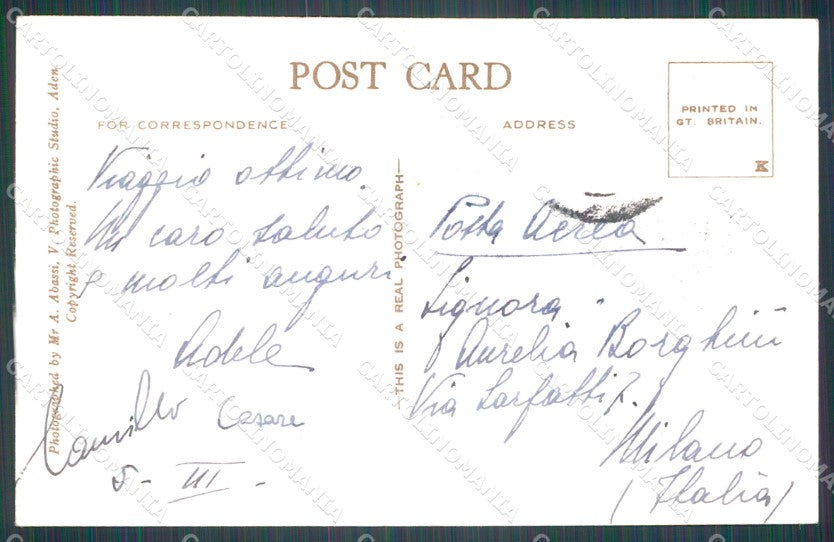 POST CARD
FOR CORRESPONDENCE
ADDRESS
PRINTED IN
GT. BRITAIN.
K
Photographed by Mr A. Abassi, V. Photographic Studio, Aden.
Copyright Reserved.
THIS IS A REAL PHOTOGRAPH
Viaggio ottimo.
Un caro saluto
e molti auguri
Adele
Camillo Cesare
5 - III -
Posta Aerea
Signora
Aurelia Borghini
Via Sarfatti 7.
Milano
(Italia)
CARTOLINOMANIA